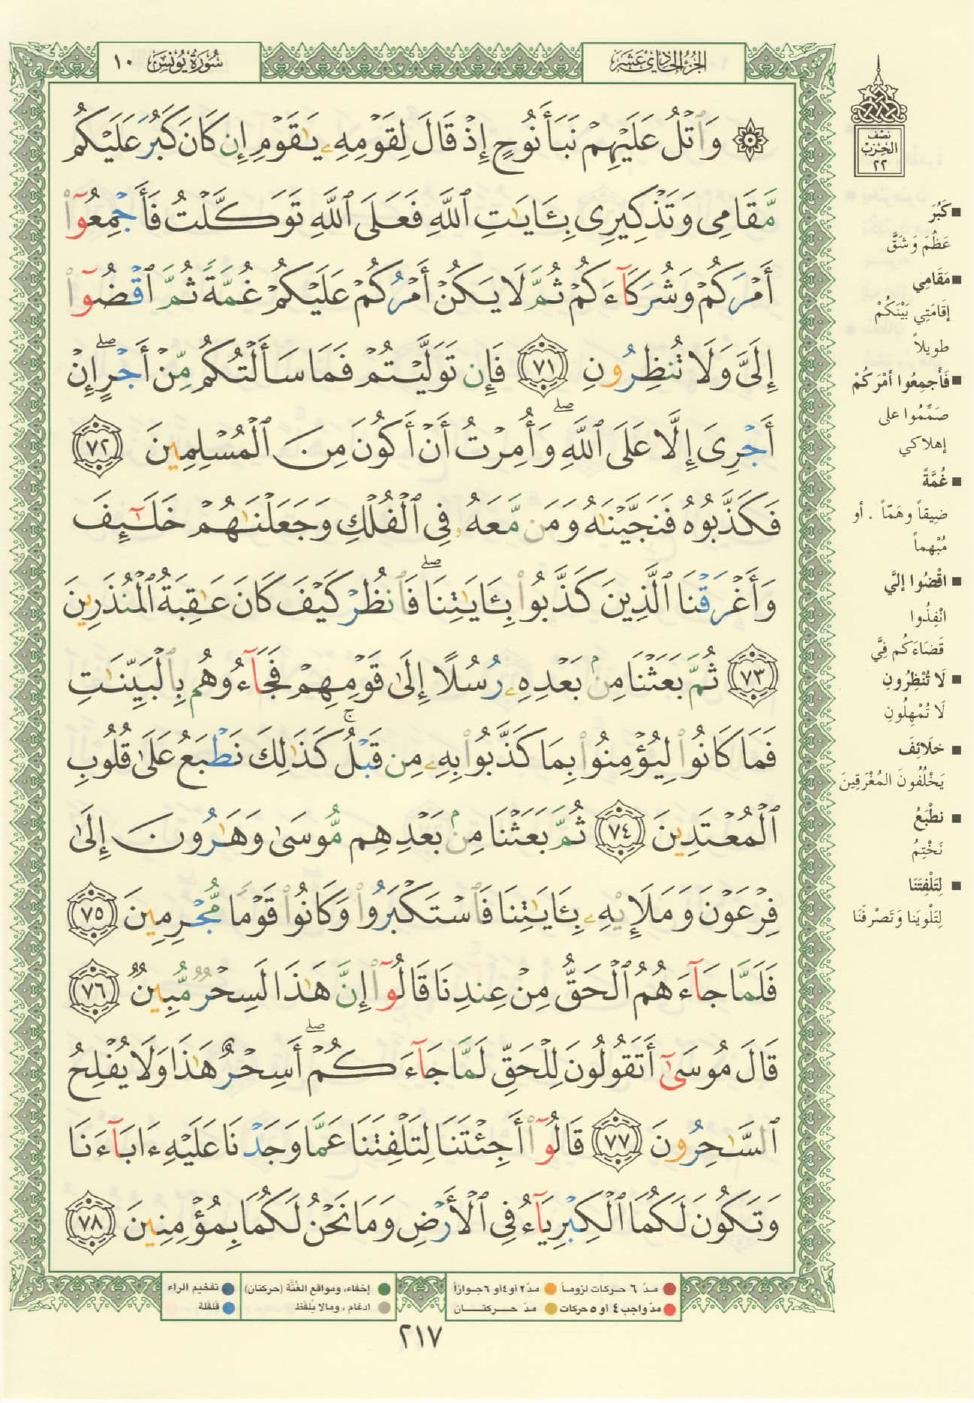 سُورَةُ يُونُسَ ١٠
الجُزْءُ الحَادِي عَشَرَ
۞ وَٱتْلُ عَلَيْهِمْ نَبَأَ نُوحٍ إِذْ قَالَ لِقَوْمِهِۦ يَـٰقَوْمِ إِن كَانَ كَبُرَ عَلَيْكُم
مَّقَامِى وَتَذْكِيرِى بِـَٔايَـٰتِ ٱللَّهِ فَعَلَى ٱللَّهِ تَوَكَّلْتُ فَأَجْمِعُوٓا۟
أَمْرَكُمْ وَشُرَكَآءَكُمْ ثُمَّ لَا يَكُنْ أَمْرُكُمْ عَلَيْكُمْ غُمَّةً ثُمَّ ٱقْضُوٓا۟
إِلَىَّ وَلَا تُنظِرُونِ ٧١ فَإِن تَوَلَّيْتُمْ فَمَا سَأَلْتُكُم مِّنْ أَجْرٍ ۖ إِنْ
أَجْرِىَ إِلَّا عَلَى ٱللَّهِ ۖ وَأُمِرْتُ أَنْ أَكُونَ مِنَ ٱلْمُسْلِمِينَ ٧٢
فَكَذَّبُوهُ فَنَجَّيْنَـٰهُ وَمَن مَّعَهُۥ فِى ٱلْفُلْكِ وَجَعَلْنَـٰهُمْ خَلَـٰٓئِفَ
وَأَغْرَقْنَا ٱلَّذِينَ كَذَّبُوا۟ بِـَٔايَـٰتِنَا ۖ فَٱنظُرْ كَيْفَ كَانَ عَـٰقِبَةُ ٱلْمُنذَرِينَ
٧٣ ثُمَّ بَعَثْنَا مِنۢ بَعْدِهِۦ رُسُلًا إِلَىٰ قَوْمِهِمْ فَجَآءُوهُم بِٱلْبَيِّنَـٰتِ
فَمَا كَانُوا۟ لِيُؤْمِنُوا۟ بِمَا كَذَّبُوا۟ بِهِۦ مِن قَبْلُ ۚ كَذَٰلِكَ نَطْبَعُ عَلَىٰ قُلُوبِ
ٱلْمُعْتَدِينَ ٧٤ ثُمَّ بَعَثْنَا مِنۢ بَعْدِهِم مُّوسَىٰ وَهَـٰرُونَ إِلَىٰ
فِرْعَوْنَ وَمَلَإِي۟هِۦ بِـَٔايَـٰتِنَا فَٱسْتَكْبَرُوا۟ وَكَانُوا۟ قَوْمًا مُّجْرِمِينَ ٧٥
فَلَمَّا جَآءَهُمُ ٱلْحَقُّ مِنْ عِندِنَا قَالُوٓا۟ إِنَّ هَـٰذَا لَسِحْرٌ مُّبِينٌ ٧٦
قَالَ مُوسَىٰٓ أَتَقُولُونَ لِلْحَقِّ لَمَّا جَآءَكُمْ ۖ أَسِحْرٌ هَـٰذَا وَلَا يُفْلِحُ
ٱلسَّـٰحِرُونَ ٧٧ قَالُوٓا۟ أَجِئْتَنَا لِتَلْفِتَنَا عَمَّا وَجَدْنَا عَلَيْهِ ءَابَآءَنَا
وَتَكُونَ لَكُمَا ٱلْكِبْرِيَآءُ فِى ٱلْأَرْضِ وَمَا نَحْنُ لَكُمَا بِمُؤْمِنِينَ ٧٨
نصف
الحزب
٢٢
■ كَبُرَ
عَظُمَ وَشَقَّ
■ مَقَامِي
إقَامَتِي بَيْنَكُمْ
طويلاً
■ فَأَجمِعُوا أمْرَكُمْ
صَمِّمُوا على
إهلاكي
■ غُمَّةً
ضيقاً وهَمّاً . أو
مُبْهماً
■ اقْضُوا إليَّ
انْفِذُوا
قَضَاءَكُم فِيَّ
■ لَا تُنْظِرُونِ
لَا تُمْهِلُونِ
■ خلَائِفَ
يَخْلُفُونَ المُغْرَقِينَ
■ نطْبَعُ
نَخْتِمُ
■ لِتَلْفِتَنَا
لِتَلْوِيَنا وَتَصْرِفَنَا
مدّ ٦ حركات لزوماً ● مدّ ٢ أو ٤ أو ٦ جوازاً ● إخفاء، ومواقع الغُنَّة (حركتان) ● تفخيم الراء
مدّ واجب ٤ أو ٥ حركات ● مدّ حركتان ● ادغام ، ومالا يُلفَظ ● قلقلة
٢١٧